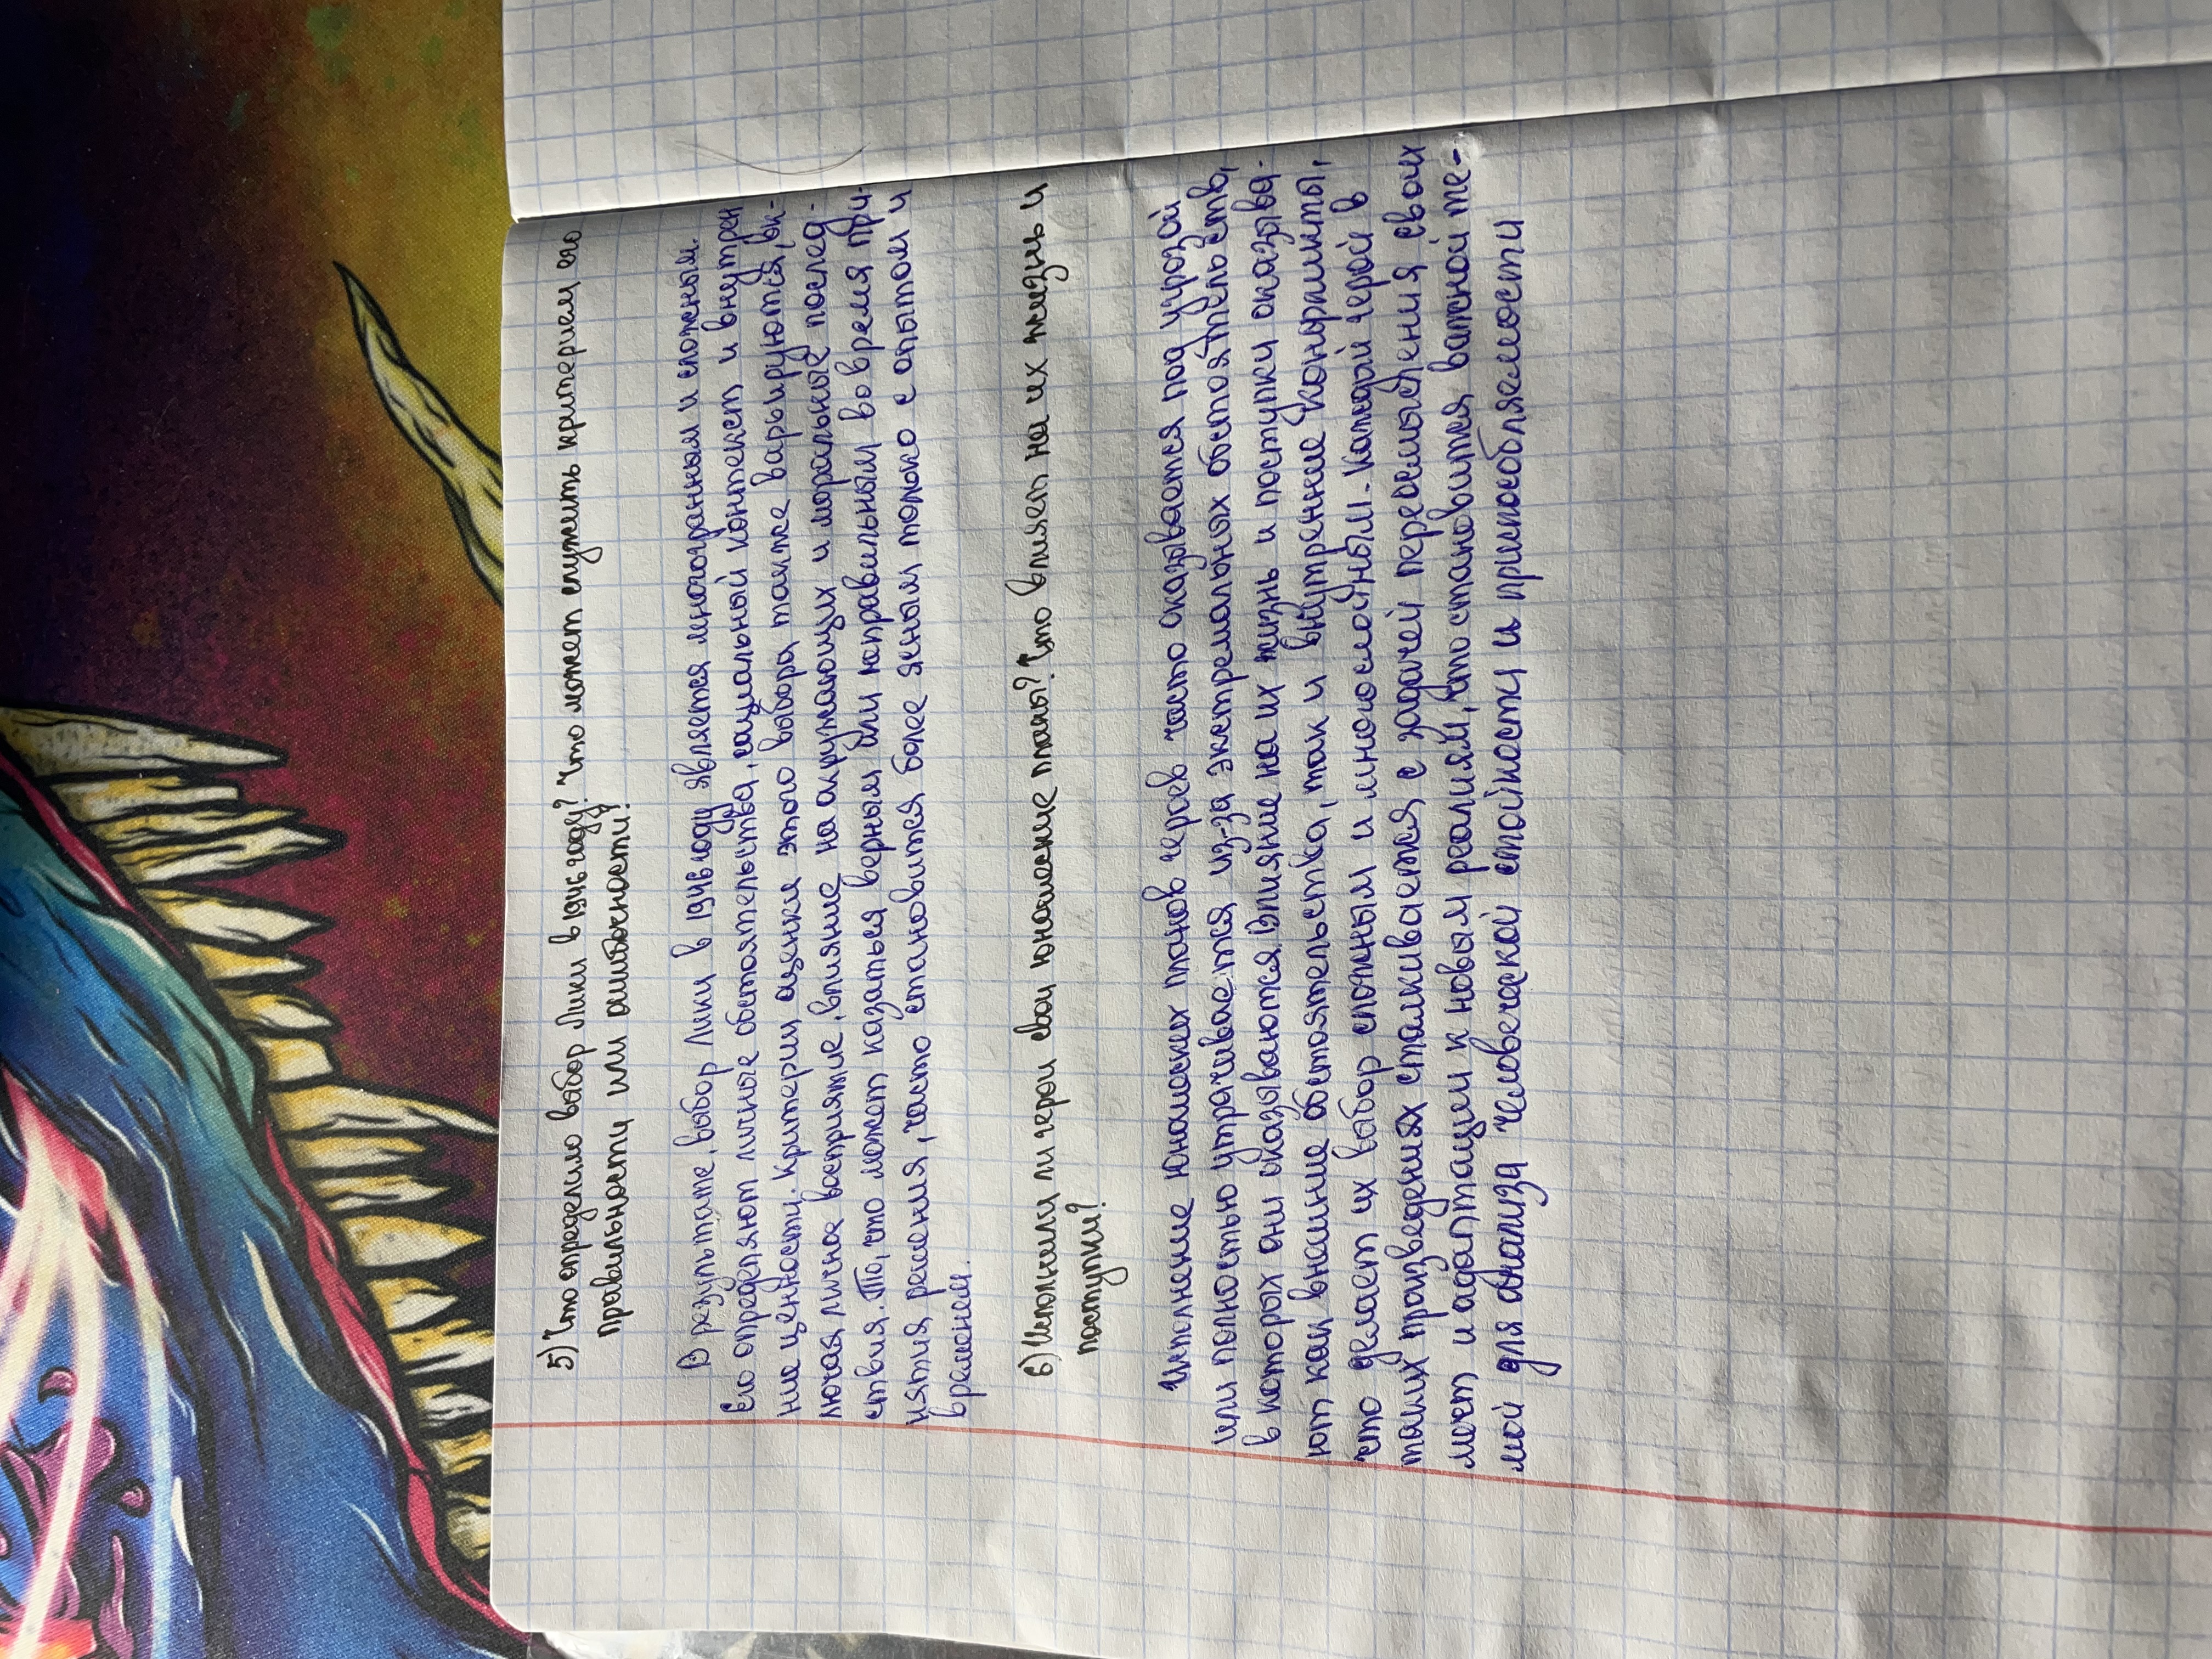 5) Что определило выбор Лики в 1946 году? Что может служить критерием его
правильности или ошибочности?
В результате, выбор Лики в 1946 году является многогранным и сложным.
Его определяют личные обстоятельства, социальный контекст и внутрен
ние ценности. Критерии оценки этого выбора также варьируются, вк-
лючая лична восприятие, влияние на окружающих и моральные послед-
ствия. То, что может казаться верным или неправильным во время при-
нятия решения, часто становится более ясным только с опытом и
временем.
6) Исполнили ли герои свои юношеские планы? Что влияет на их жизнь и
поступки?
Исполнение юношеских планов героев часто оказывается под угрозой
или полностью утрачивается из-за экстремальных обстоятельств,
в которых они оказываются. Влияние на их жизнь и поступки оказыва-
ют как внешние обстоятельства, так и внутренние конфликты,
что делает их выбор сложным и многослойным. Каждый герой в
таких произведениях сталкивается с задачей переосмысления своих
мест и адаптации к новым реалиям, что становится важной те-
мой для анализа человеческой стойкости и приспособляемости